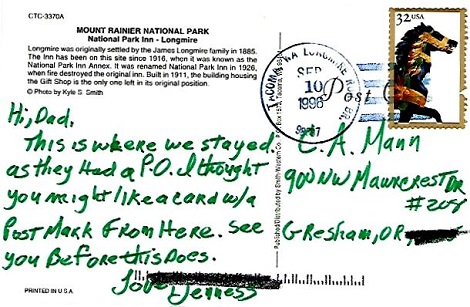 CTC-3370A
MOUNT RAINIER NATIONAL PARK
National Park Inn - Longmire
Longmire was originally settled by the James Longmire family in 1885.
The Inn has been on this site since 1916, when it was known as the
National Park Inn Annex. It was renamed National Park Inn in 1926,
when fire destroyed the original inn. Built in 1911, the building housing
the Gift Shop is the only one left in its original position.
© Photo by Kyle S. Smith
Hi, Dad.
This is where we stayed.
as they Had a P.O. I thought
you might like a card w/a
Post Mark From Here. See
you Before this Does.
Love
PRINTED IN U.S.A.
Published and Distributed by Smith-Western Co.
32 USA
TACOMA WA LONGMIRE
SEP
10
1996
Post
C. A. Mann
900 NW Mawrcrest Dr
#208
Gresham, OR,